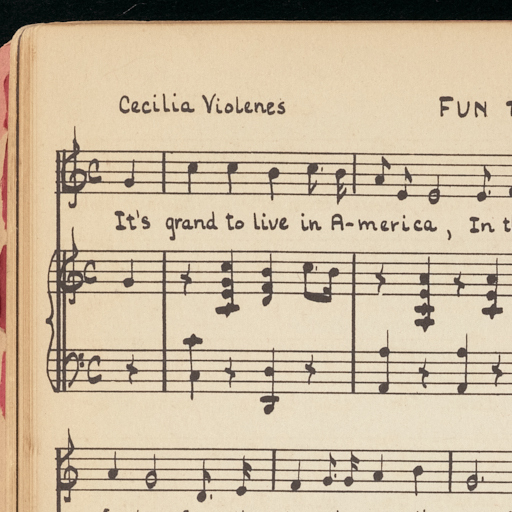 Cecilia Violenes
FUN
It's grand to live in A-merica, In